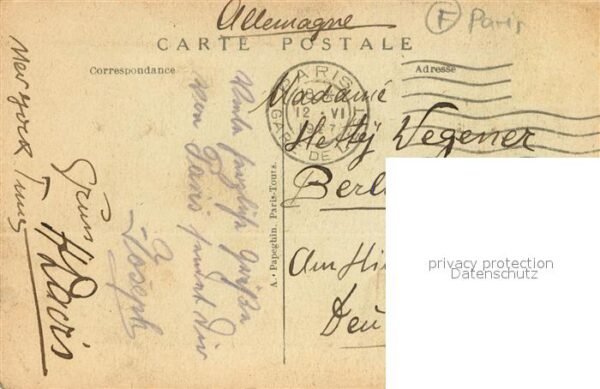 Allemagne
F Paris
CARTE POSTALE
Correspondance
Adresse
PARIS
12 - VI
GARE DE
Madame
Hetty Wegener
Berl
Am
Deu
A. Papeghin, Paris-Tours.
Grüße
von Paris sendet Dir
Joseph
Gruss
H Davis
New York Times
privacy protection
Datenschutz